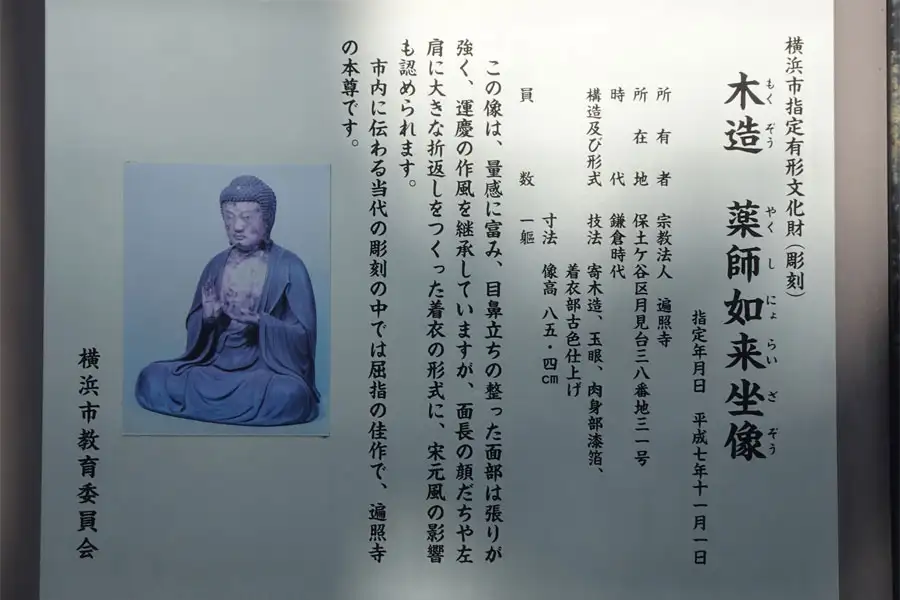 横浜市指定有形文化財（彫刻）
木造　薬師如来坐像
もくぞう　やくしにょらいざぞう
指定年月日　平成七年十一月一日
所有者　宗教法人　遍照寺
所在地　保土ケ谷区月見台三八番地三一号
時代　鎌倉時代
構造及び形式　技法　寄木造、玉眼、肉身部漆箔、
着衣部古色仕上げ
寸法　像高　八五・四cm
員数　一軀
この像は、量感に富み、目鼻立ちの整った面部は張りが
強く、運慶の作風を継承していますが、面長の顔だちや左
肩に大きな折返しをつくった着衣の形式に、宋元風の影響
も認められます。
市内に伝わる当代の彫刻の中では屈指の佳作で、遍照寺
の本尊です。
横浜市教育委員会